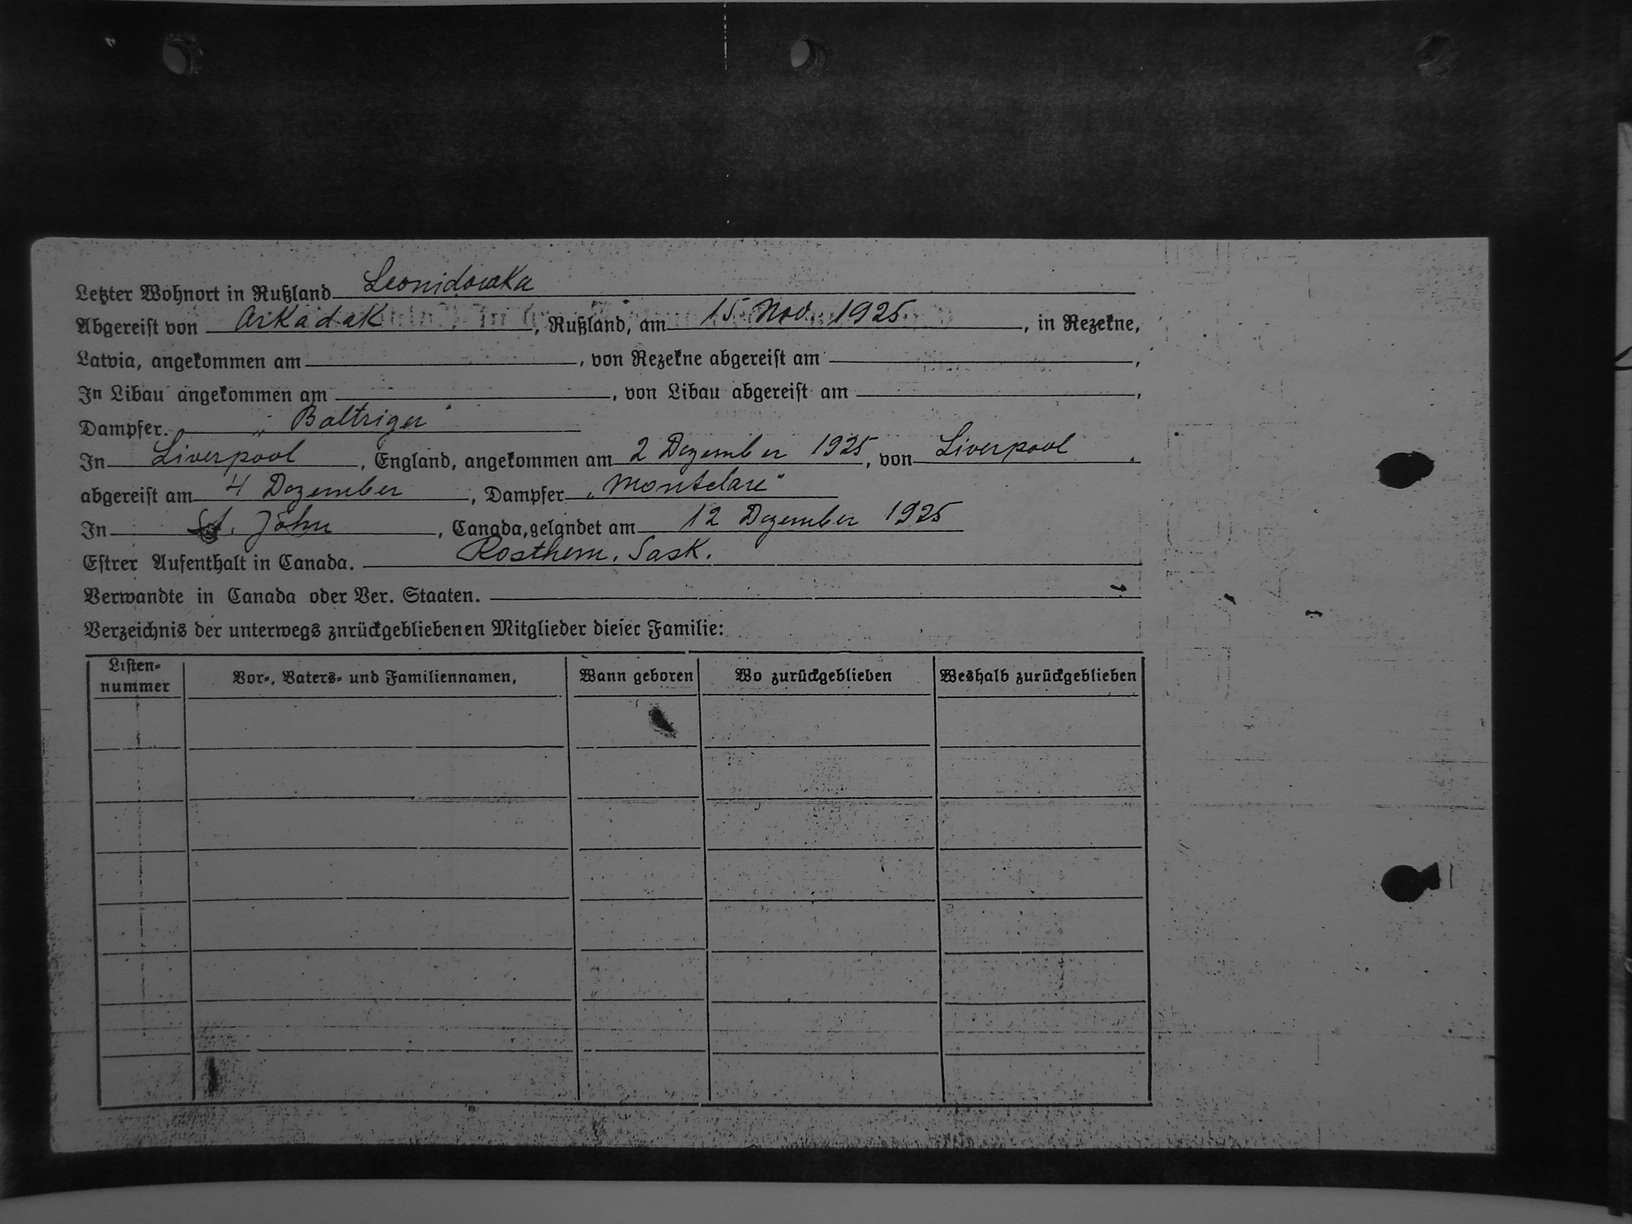 Letzter Wohnort in Rußland Leonidowka
Abgereist von Arkadak, Rußland, am 15. Nov. 1925, in Rezekne,
Latvia, angekommen am , von Rezekne abgereist am ,
In Libau angekommen am , von Libau abgereist am ,
Dampfer. „Baltriger"
In Liverpool, England, angekommen am 2 Dezember 1925, von Liverpool.
abgereist am 4 Dezember, Dampfer „Montclare"
In St. John, Canada, gelandet am 12 Dezember 1925
Estrer Aufenthalt in Canada. Rosthern, Sask.
Verwandte in Canada oder Ver. Staaten. –
Verzeichnis der unterwegs znrückgebliebenen Mitglieder dieser Familie:
Listen-nummer Vor-, Vaters- und Familiennamen, Wann geboren Wo zurückgeblieben Weshalb zurückgeblieben